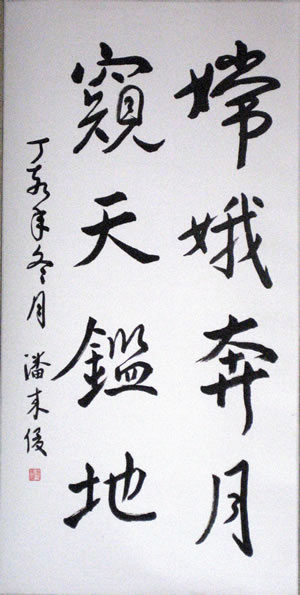 嫦娥奔月
窺天鑑地
丁亥年冬月 潘来俊